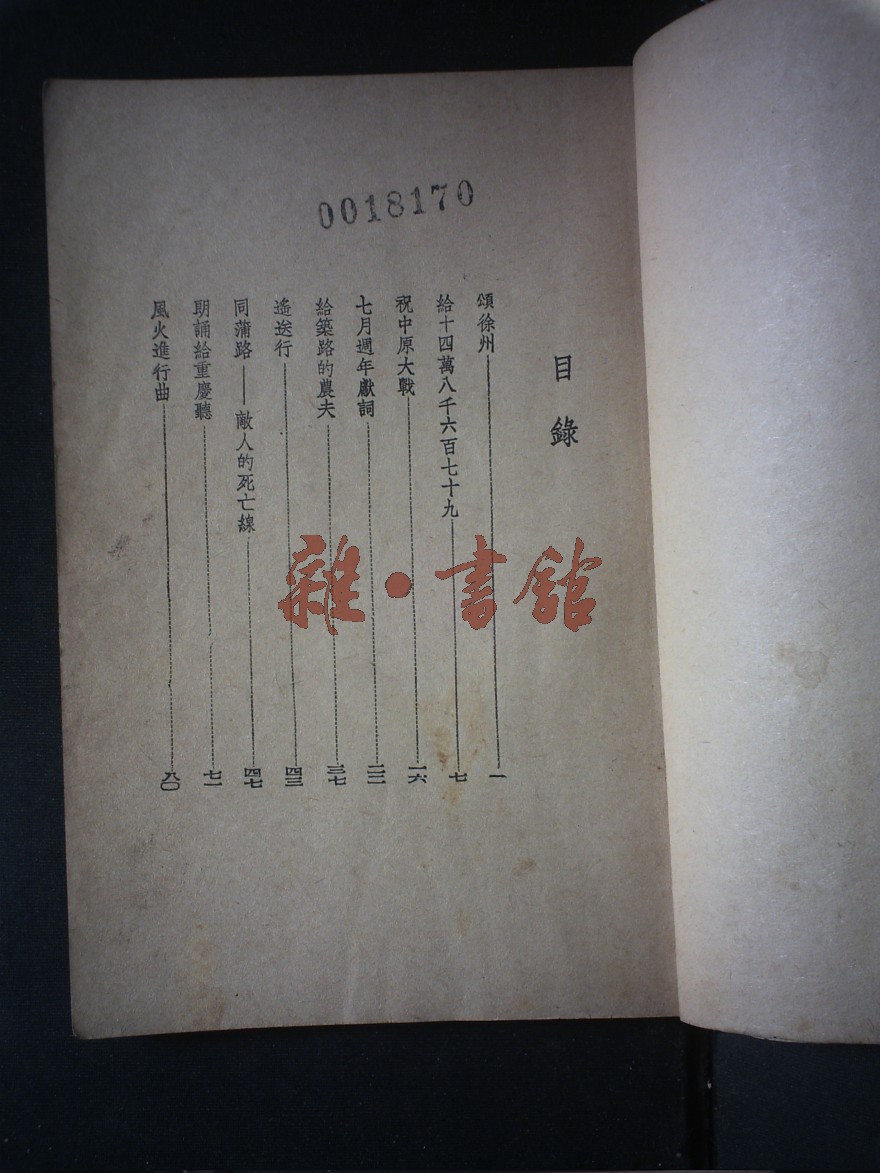 0018170
目錄
頌徐州 一
給十四萬八千六百七十九 七
祝中原大戰 一六
七月週年獻詞 二二
給築路的農夫 三七
遙送行 四三
同蒲路——敵人的死亡線 四七
朗誦給重慶聽 七一
風火進行曲 八〇
雜·書館